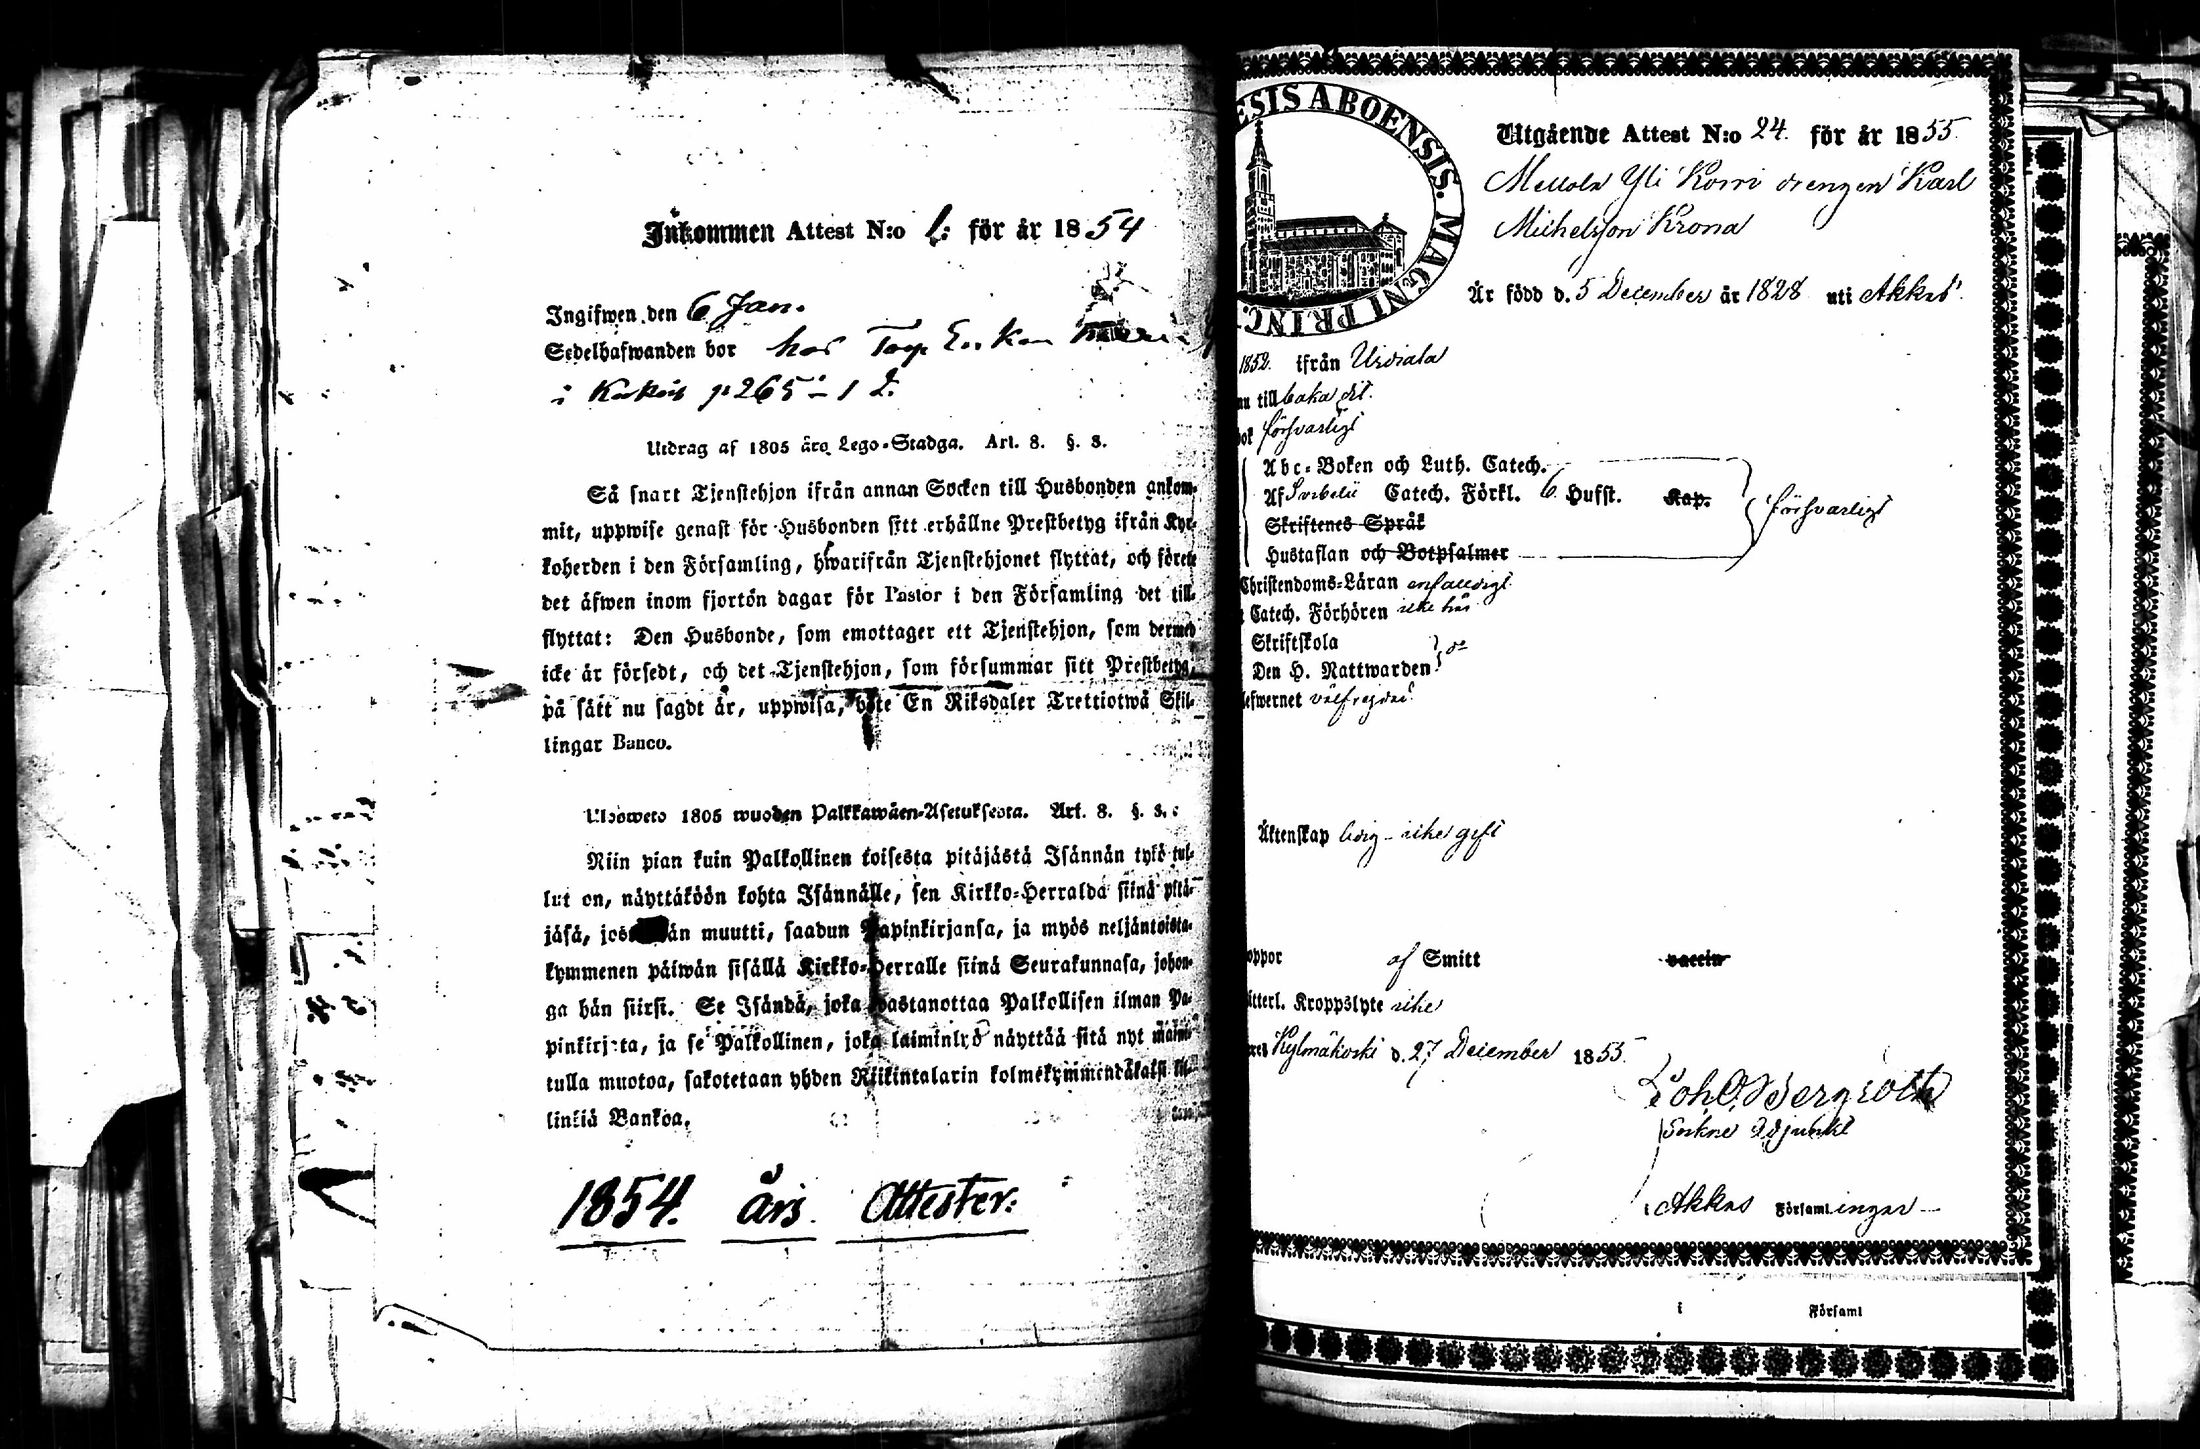 Inkommen Attest N:o 1: för år 1854
Ingifwen den 6 Jan.
Sedelhafwanden bor hos Torp
i p 265
Utdrag af 1805 års Lego-Stadga. Art. 8. §. 3.
Så snart Tjenstehjon ifrån annan Socken till Husbonden ankom-
mit, uppwise genast för Husbonden sitt erhållne Prestbetyg ifrån Kyr-
koherden i den Församling, hwarifrån Tjenstehjonet flyttat, och förete
det äfwen inom fjorton dagar för Pastor i den Församling det till-
flyttat: Den Husbonde, som emottager ett Tjenstehjon, som dermed
icke är försedt, och det Tjenstehjon, som försummar sitt Prestbetyg,
på sätt nu sagdt är, uppwisa, böte En Riksdaler Trettiotwå Skil-
lingar Banco.
Ulosweto 1805 wuoden Palkkawäen-Asetuksesta. Art. 8. §. 3.
Niin pian kuin Palkollinen toisesta pitäjästä Isännän tykö tul-
lut on, näyttäköön kohta Isännälle, sen Kirkko-Herralda siinä pitä-
jäsä, josta hän muutti, saadun Papinkirjansa, ja myös neljäntoista-
kymmenen päiwän sisällä Kirkko-Herralle siinä Seurakunnasa, johon-
ga hän siirsi. Se Isändä, joka wastanottaa Palkollisen ilman Pa-
pinkirjata, ja se Palkollinen, joka laiminlyö näyttää sitä nyt mainit-
tulla muotoa, sakotetaan yhden Riikintalarin kolmekymmendäkaksi kil-
linkiä Bankoa.
1854. års Attester:
ESIS ABOENSIS. MAGNI PRINC.
Utgående Attest N:o 24. för år 1855.
Mellola Yli Korri drengen Karl
Michelsson Krona
Är född d. 5 December år 1828 uti Akkas
1852. ifrån Urdiala
nu tillbaka dit.
bok försvarligt
Abc-Boken och Luth. Catech.
Af Svebelii Catech. Förkl. 6 Hufst. Kap. försvarligt
Skriftenes Språk
Hustaflan och Botpsalmer
Christendoms-Läran enfaldigt
Catech. Förhören icke här
Skriftskola
Den H. Nattwarden do
lefwernet välfrejdad
Äktenskap ledig - icke gift
oppor af Smitt vaccin
itterl. Kroppslyte icke
Kylmäkoski d. 27 December 1855.
Joh. O. Bergroth
Sockne Adjunkt
i Akkas Församlingar
i Församl